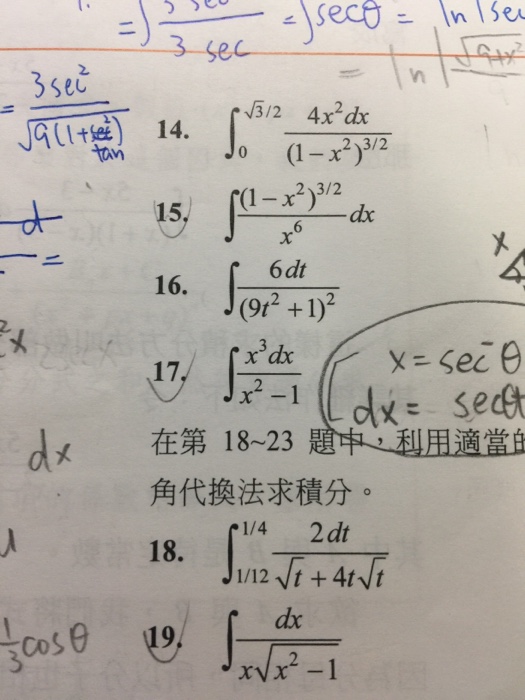 = ∫ 3 sec / 3 sec = ∫ secθ = ln|sec
= ln| √9+x²
= 3sec² / √9(1+tan
14. ∫₀^(√3/2) 4x²dx / (1−x²)^(3/2)
15. ∫ (1−x²)^(3/2) / x⁶ dx
16. ∫ 6dt / (9t²+1)²
17. ∫ x³dx / x²−1
x = secθ
dx = secθt
dx
在第 18~23 題中,利用適當的
角代換法求積分。
18. ∫_(1/12)^(1/4) 2dt / √t + 4t√t
⅓cosθ
19. ∫ dx / x√x²−1